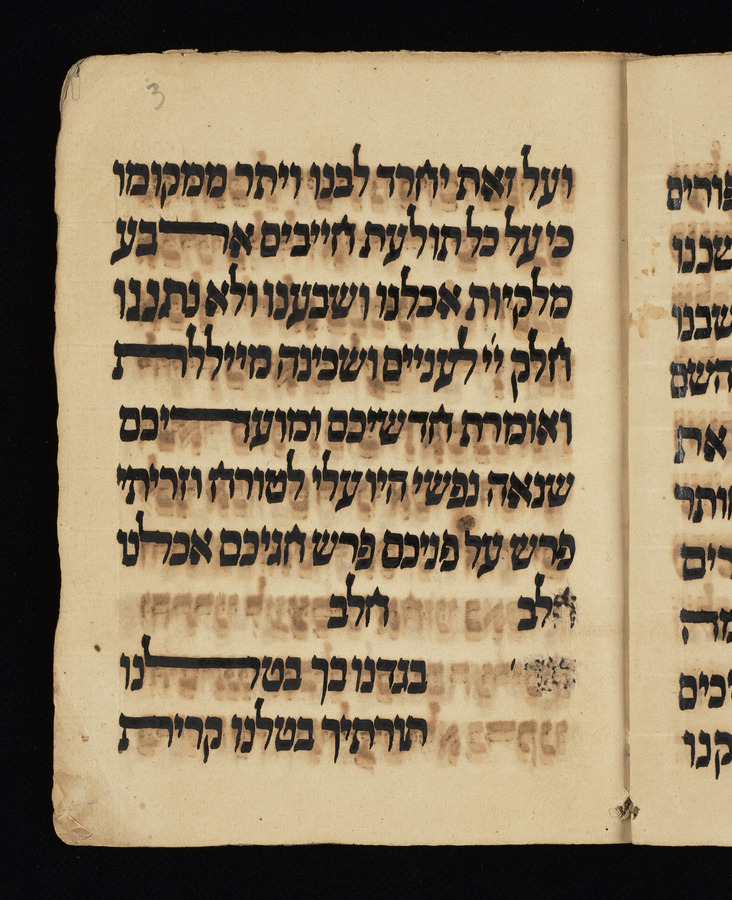 3
ועל זאת יחרד לבנו ויתר ממקומו
כי על כל תולעת חייבים ארבע
מלקיות אכלנו ושבענו ולא נתננו
חלק יי לעניים ושכינה מייללת
ואומרת חדשיכם ומועדיכם
שנאה נפשי היו עלי לטורח וזריתי
פרש על פניכם פרש חגיכם אכלנו
חלב חלב
בגדנו בך בטלנו
תורתיך בטלנו קרירת
פורים
שכנו
שבנו
השם
את
תותר
רים
מה
יכים
קנו